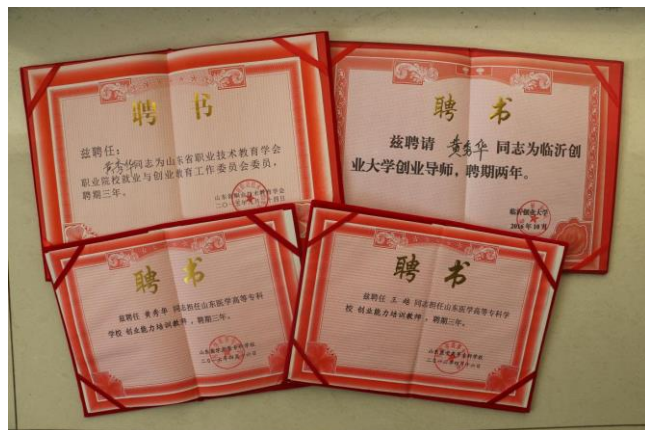 聘 书
兹聘任：
黄秀华同志为山东省职业技术教育学会
职业院校就业与创业教育工作委员会委员，
聘期三年。
山东省职业技术教育学会
聘 书
兹聘请 黄秀华 同志为临沂创
业大学创业导师，聘期两年。
临沂创业大学
2016年10月
聘 书
兹聘任 黄秀华 同志担任山东医学高等专科
学校 创业能力培训教师，聘期三年。
山东医学高等专科学校
聘 书
兹聘任 王 同志担任山东医学高等专科学
校 创业能力培训教师，聘期三年。
山东医学高等专科学校